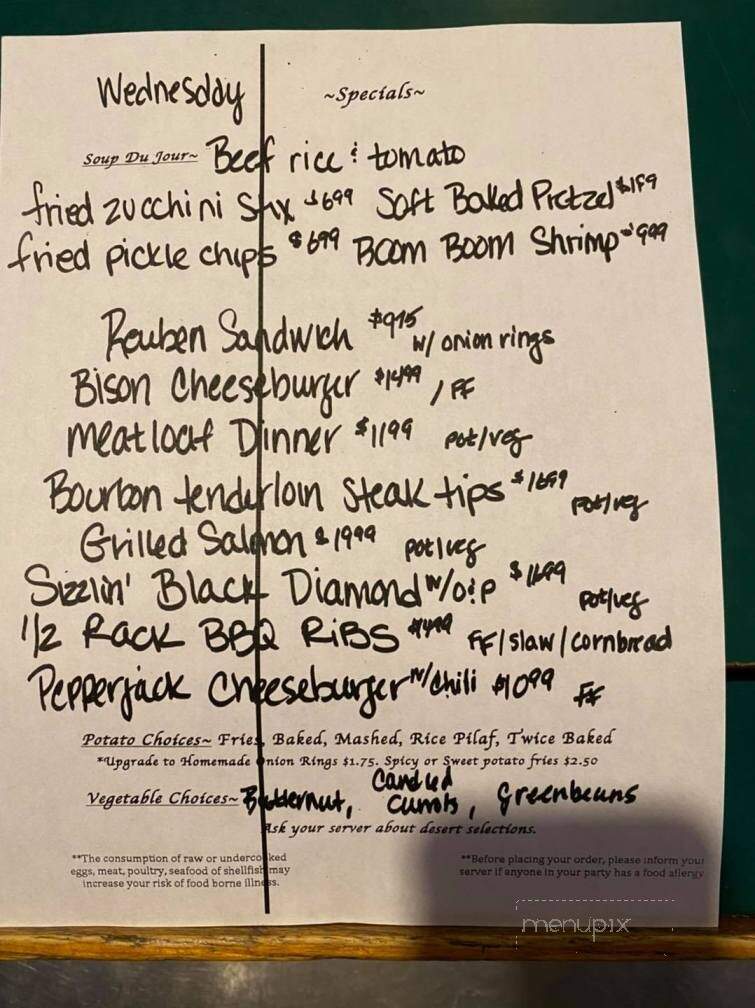 Wednesday ~Specials~
Soup Du Jour~ Beef rice & tomato
fried zucchini Stix $699 Soft Baked Pretzel
fried pickle chips $699 Boom Boom Shrimp 999
Reuben Sandwich $975 w/ onion rings
Bison Cheeseburger $1499 / FF
Meatloaf Dinner $1199 pot/veg
Bourbon tenderloin Steak tips $1699 pot/veg
Grilled Salmon $1999 pot/veg
Sizzlin' Black Diamond w/o&p $1699 pot/veg
1/2 Rack BBQ Ribs $1499 FF/slaw/cornbread
Pepperjack Cheeseburger w/chili $1099 FF
Potato Choices~ Fries, Baked, Mashed, Rice Pilaf, Twice Baked
*Upgrade to Homemade Onion Rings $1.75. Spicy or Sweet potato fries $2.50
Vegetable Choices~ Butternut, Candied Carrots, Greenbeans
Ask your server about desert selections.
**The consumption of raw or undercooked
eggs, meat, poultry, seafood of shellfish may
increase your risk of food borne illness.
**Before placing your order, please inform your
server if anyone in your party has a food allergy
menupix